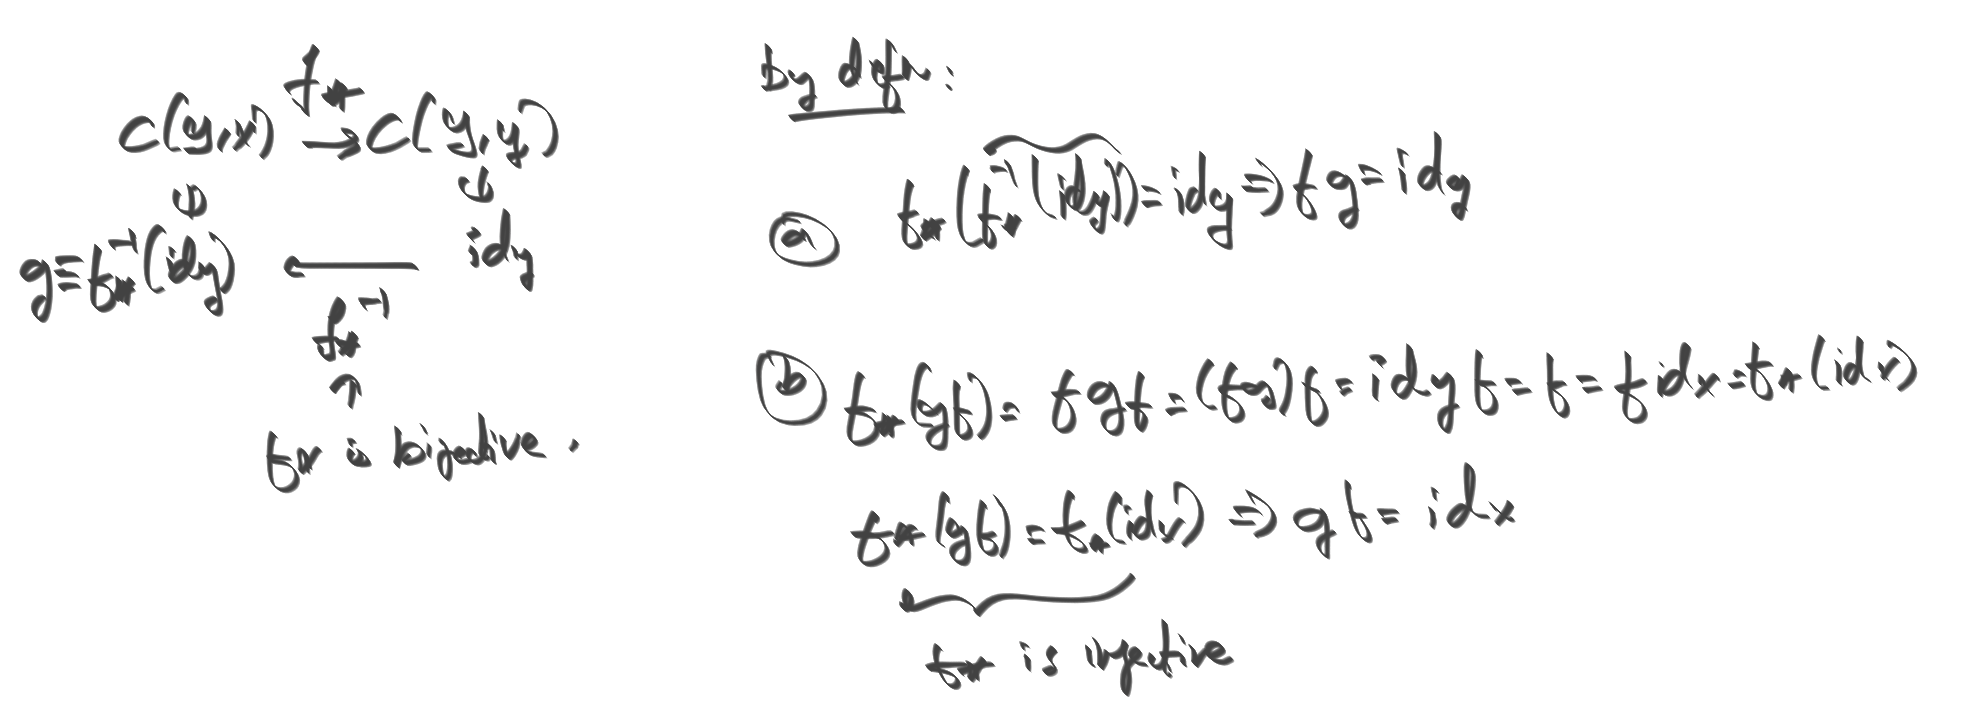 C(y,x) →^{f_*} C(y,y)
g = f_*^{-1}(id_y) ← id_y
f_*^{-1}
↑
f_* is bijective.
by defn:
ⓐ f_*(f_*^{-1}(id_y)) = id_y ⇒ f g = id_y
ⓑ f_*(gf) = f g f = (f g) f = id_y f = f = f id_x = f_*(id_x)
f_*(gf) = f_*(id_x) ⇒ g f = id_x
f_* is injective